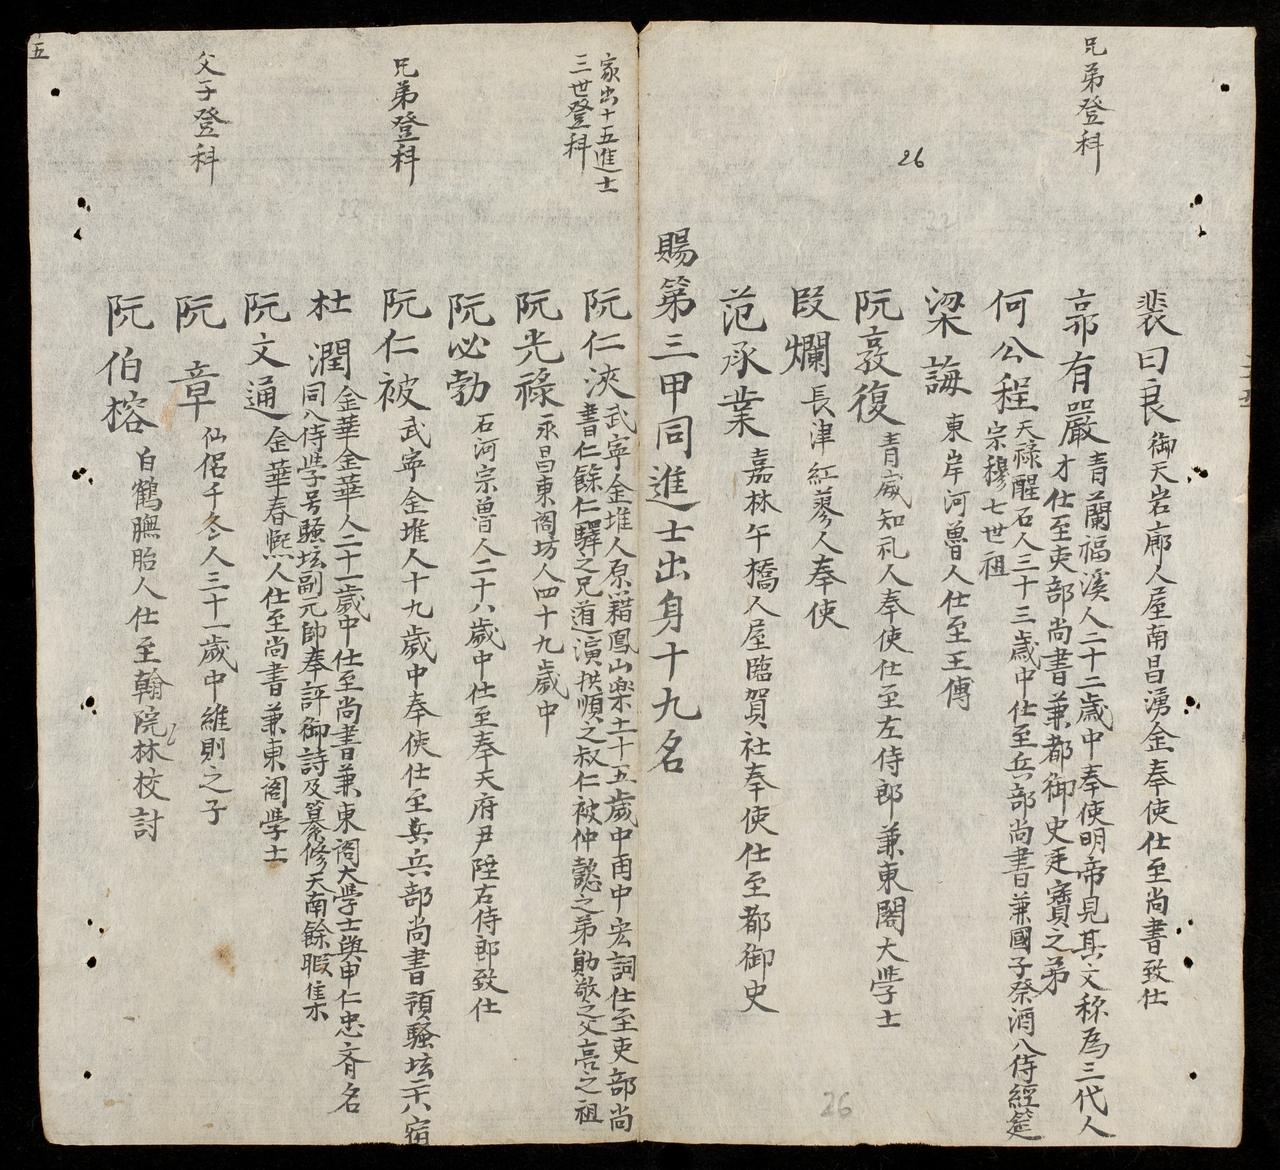 兄弟登科
裴曰良御天岩廊人屋南昌湧金奉使仕至尚書致仕
郭有嚴青蘭福溪人二十二歲中奉使明帝見其文称為三代人
才仕至吏部尚書兼都御史廷寶之弟
何公程天禄醒石人三十三歲中仕至兵部尚書兼國子祭酒入侍經筵
宗穆七世祖
梁誨東岸河魯人仕至王傅
26
阮敦復青威知礼人奉使仕至左侍郎兼東閣大學士
段爛長津紅蓼人奉使
范承業嘉林午橋人屋臨賀社奉使仕至都御史
賜第三甲同進士出身十九名
26
家出十五進士
三世登科
阮仁浹武寧金堆人原籍鳳山楽土十五歲中甬中宏詞仕至吏部尚
書仁餘仁驛之兄道演拱順之叔仁被仲懿之弟勛敬之父亮之祖
阮光祿永昌東閣坊人四十九歲中
阮必勃石河宗魯人二十八歲中仕至奉天府尹陞右侍郎致仕
兄弟登科
阮仁被武寧金堆人十九歲中奉使仕至兵部尚書預騷坛二十八宿
杜潤金華金華人二十一歲中仕至尚書兼東閣大學士與申仁忠齊名
同入侍學号騷坛副元帥奉評御詩及纂修天南餘暇集
阮文通金華春熙人仕至尚書兼東閣學士
父子登科
阮章仙侶千冬人三十一歲中維則之子
阮伯榕白鶴臕胎人仕至翰院林校討
五